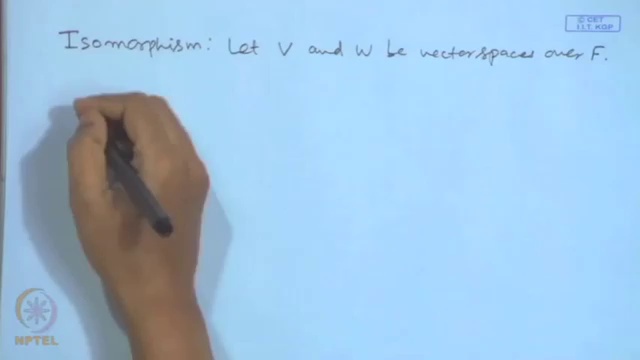 © CET
I.I.T. KGP
Isomorphism: Let V and W be vector spaces over F.
NPTEL